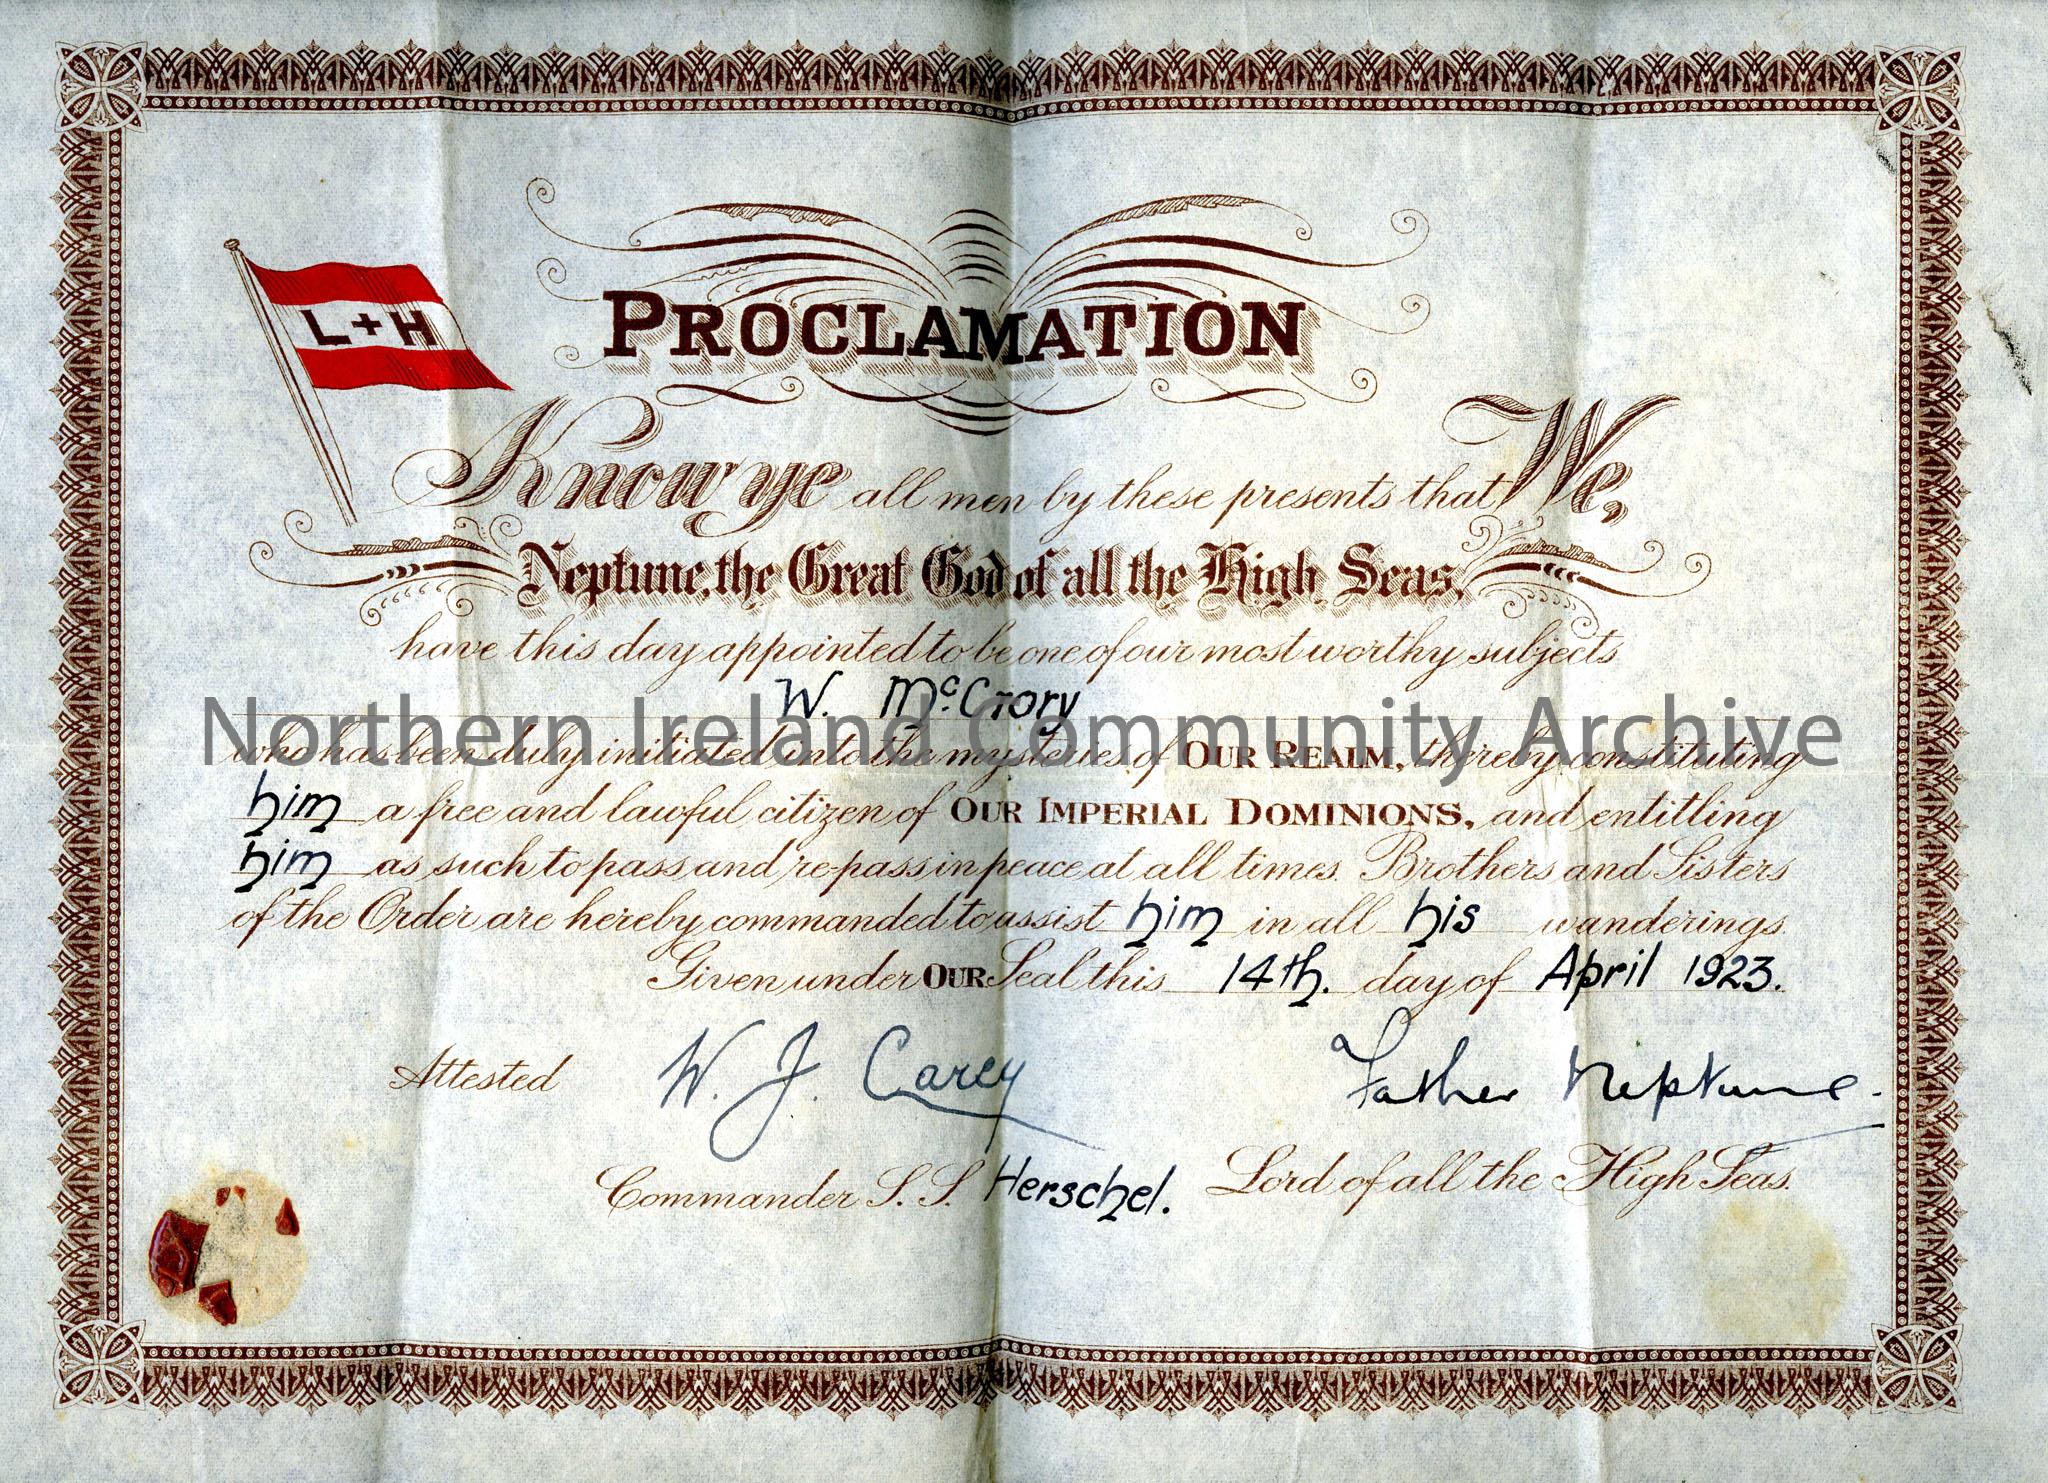 L + H
PROCLAMATION
Know ye all men by these presents that We,
Neptune, the Great God of all the High Seas,
have this day appointed to be one of our most worthy subjects
W. McCrory
Northern Ireland Community Archive
who has been duly initiated into the mysteries of OUR REALM, thereby constituting
him a free and lawful citizen of OUR IMPERIAL DOMINIONS, and entitling
him as such to pass and re-pass in peace at all times. Brothers and Sisters
of the Order are hereby commanded to assist him in all his wanderings.
Given under OUR Seal this 14th. day of April 1923.
Attested W. J. Carey Father Neptune.
Commander S. S. Herschel. Lord of all the High Seas.